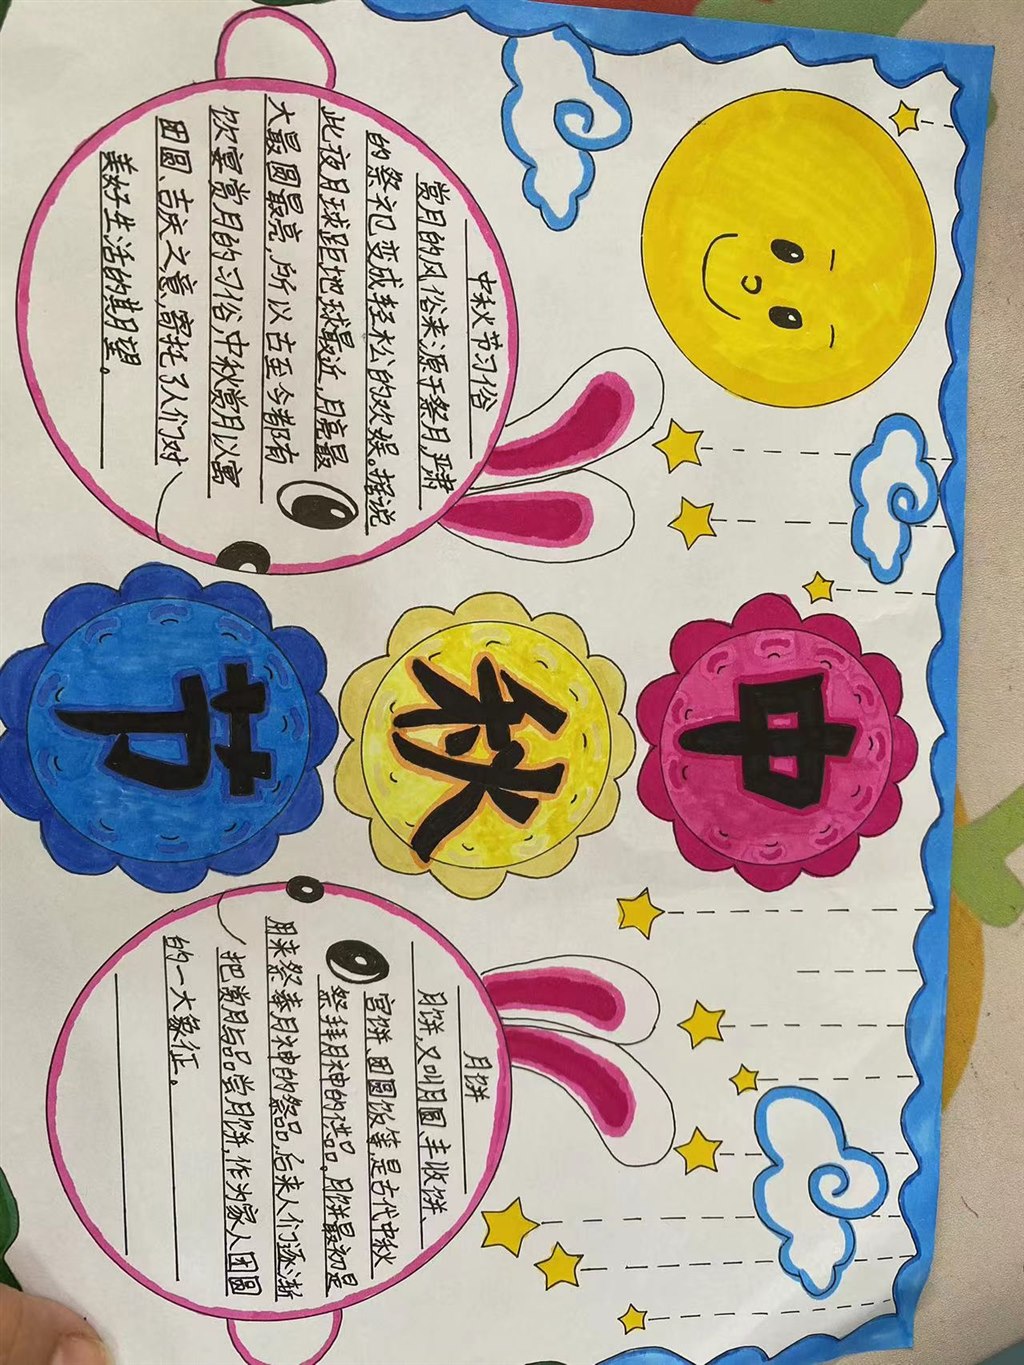 中秋节
中秋节习俗
赏月的风俗来源于祭月,严肃
的祭祀变成轻松的欢娱。据说
此夜月球距地球最近,月亮最
大最圆最亮,所以古至今都有
饮宴赏月的习俗,中秋赏月以寓
团圆、吉庆之意,寄托了人们对
美好生活的期望。
月饼
月饼,又叫月圆、丰收饼、
宫饼、团圆饭等,是古代中秋
祭拜月神的供品。月饼最初是
用来祭奉月神的祭品,后来人们逐渐
把赏月与品尝月饼,作为家人团圆
的一大象征。